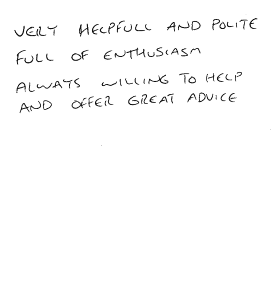 VERY HELPFULL AND POLITE
FULL OF ENTHUSIASM
ALWAYS WILLING TO HELP
AND OFFER GREAT ADVICE